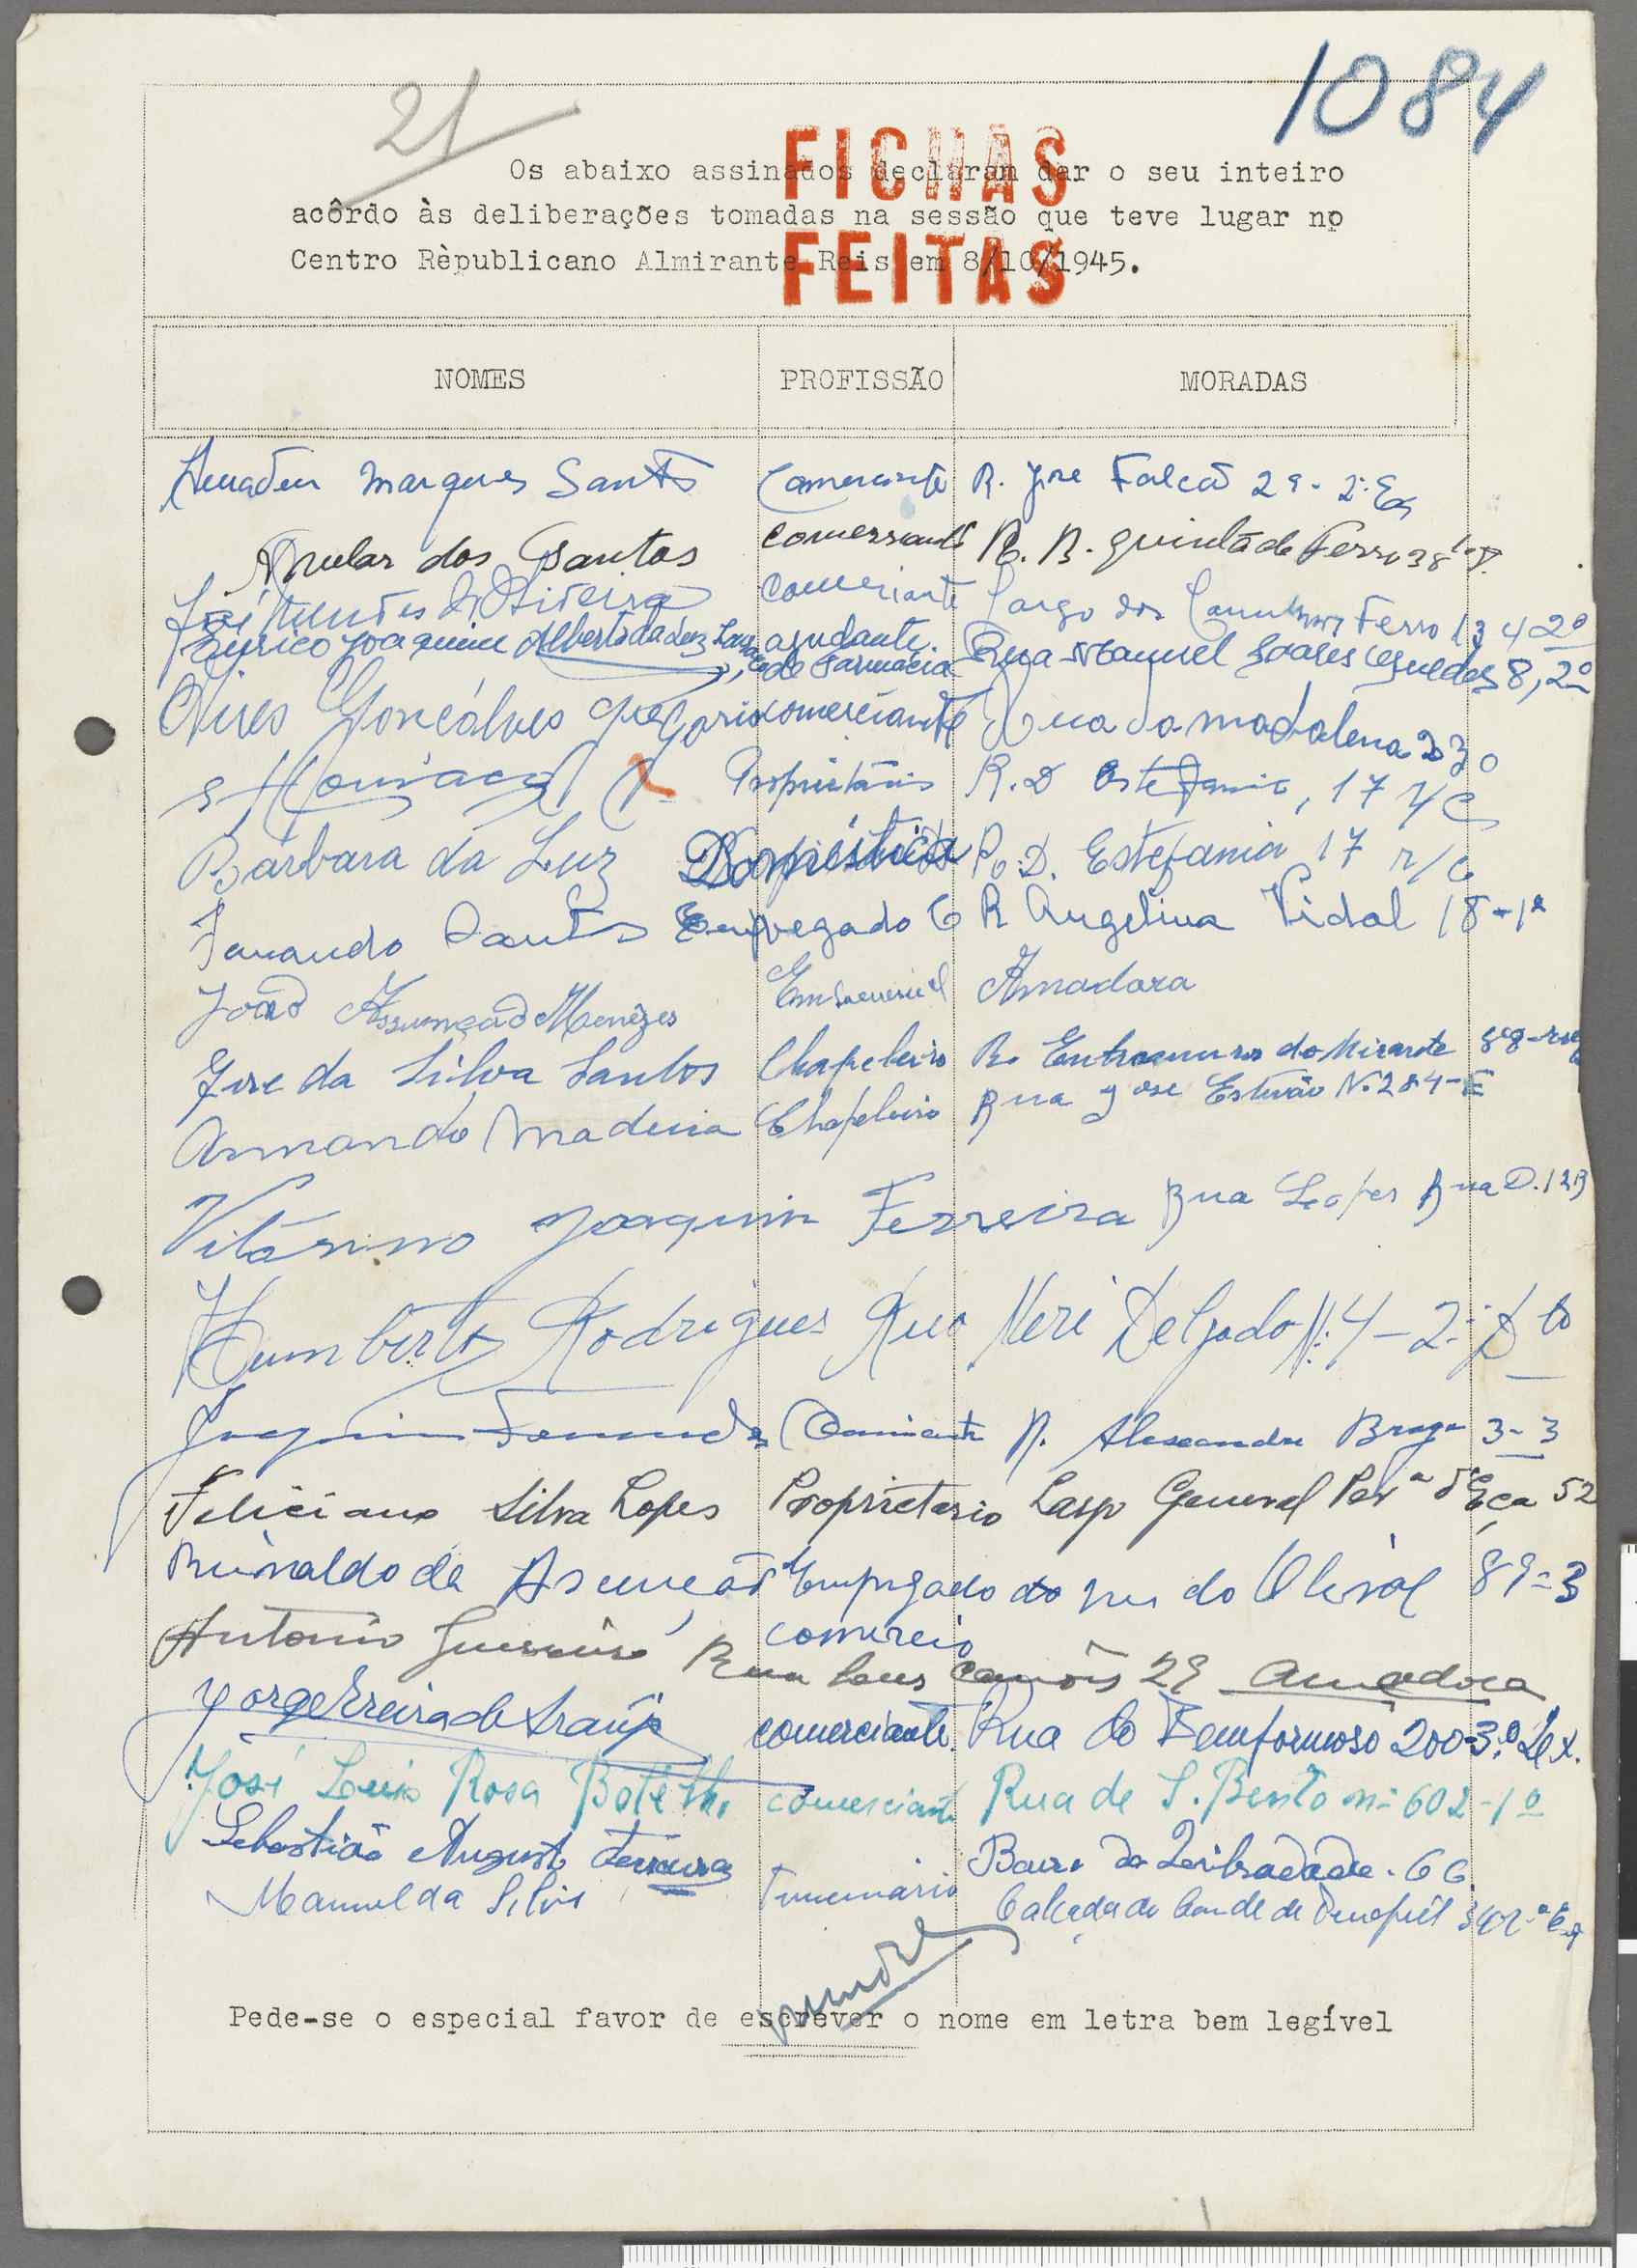 1084
21
FICHAS
FEITAS
Os abaixo assinados declaram dar o seu inteiro
acôrdo às deliberações tomadas na sessão que teve lugar no
Centro Rèpublicano Almirante Reis em 8/10/1945.
NOMES PROFISSÃO MORADAS
Amadeu Marques Santos Comerciante R. José Falcão 29-2º Esq
dos Santos comerssante R. B. quinta do Ferro 38
José Nunes de Oliveira Comerciante Largo dos Ferro 13 4 2º
Eurico Joaquim Alberto da Luz ajudante de Farmacia Rua Manuel Soares Guedes 8, 2º
Aires Gonçalves Gregorio comerciante Rua da Madalena
Proprietário R. D Estefania, 17 r/c
Bárbara da Luz Doméstica R. D. Estefania 17 r/c
Fernando Santos Empregado C R Angelina Vidal 18-1º
João Assumção Menêzes Amadora
José da Silva Santos Chapeleiro R. Entremuros do Mirante
Armando Madeira Chapeleiro Rua José Estevão Nº 284-E
Vitorino Joaquim Ferreira Rua Lopes Rua D. 12 B
Humberto Rodrigues Rua Neri Delgado Nº 4-2º Dto
Joaquim Fernandes Comerciante R. Alexandre Braga 3-3
Feliciano Silva Lopes Proprietario Largo General Perª d'Eça 52
Reinaldo da Asunção Empregado do comercio rua do Olival 89-3
Antonio Guerreiro Rua Luis Camões 29 Amadora
Jorge Ereira de Araújo comerciante. Rua do Bemformoso 200-3º
José Luis Rosa Botelho comerciante Rua de S. Bento nº 602-1º
Sebastião Augusto Ferreira Bairo da Liberdade. 66
Manuel da Silva Calçada do Conde de Penafiel
Pede-se o especial favor de escrever o nome em letra bem legível